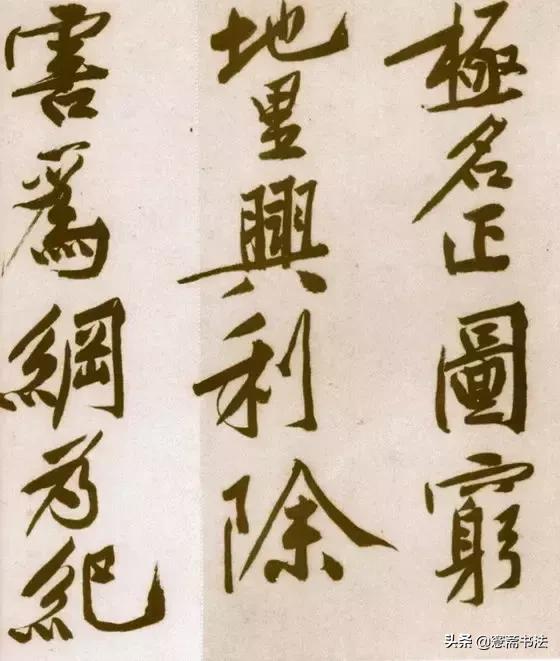 極名正圖窮
地里興利除
害爲綱为紀
头条 @愙斋书法